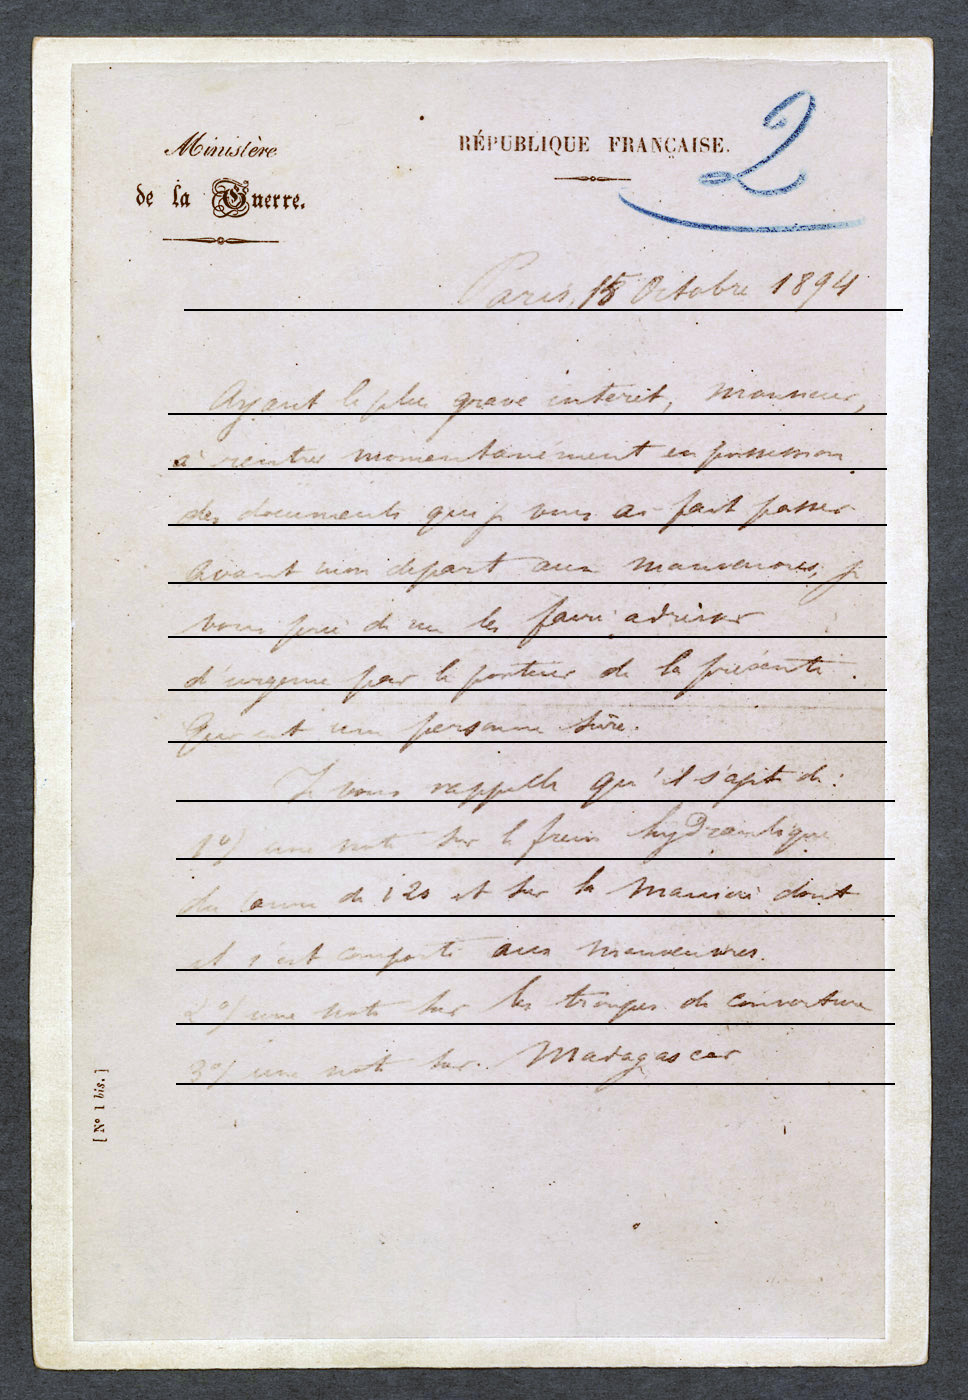 Ministère
de la Guerre.
RÉPUBLIQUE FRANÇAISE.
2
Paris, 15 Octobre 1894
Ayant le plus grave intérêt, Monsieur,
à rentrer momentanément en possession
des documents que je vous ai fait passer
avant mon départ aux manœuvres, je
vous prie de me les faire adresser
d'urgence par le porteur de la présente
qui est une personne sûre.
Je vous rappelle qu'il s'agit de :
1°/ une note sur le frein hydraulique
du canon de 120 et sur la manière dont
il s'est comporté aux manœuvres.
2°/ une note sur les troupes de couverture
3°/ une note sur Madagascar
[N° 1 bis.]